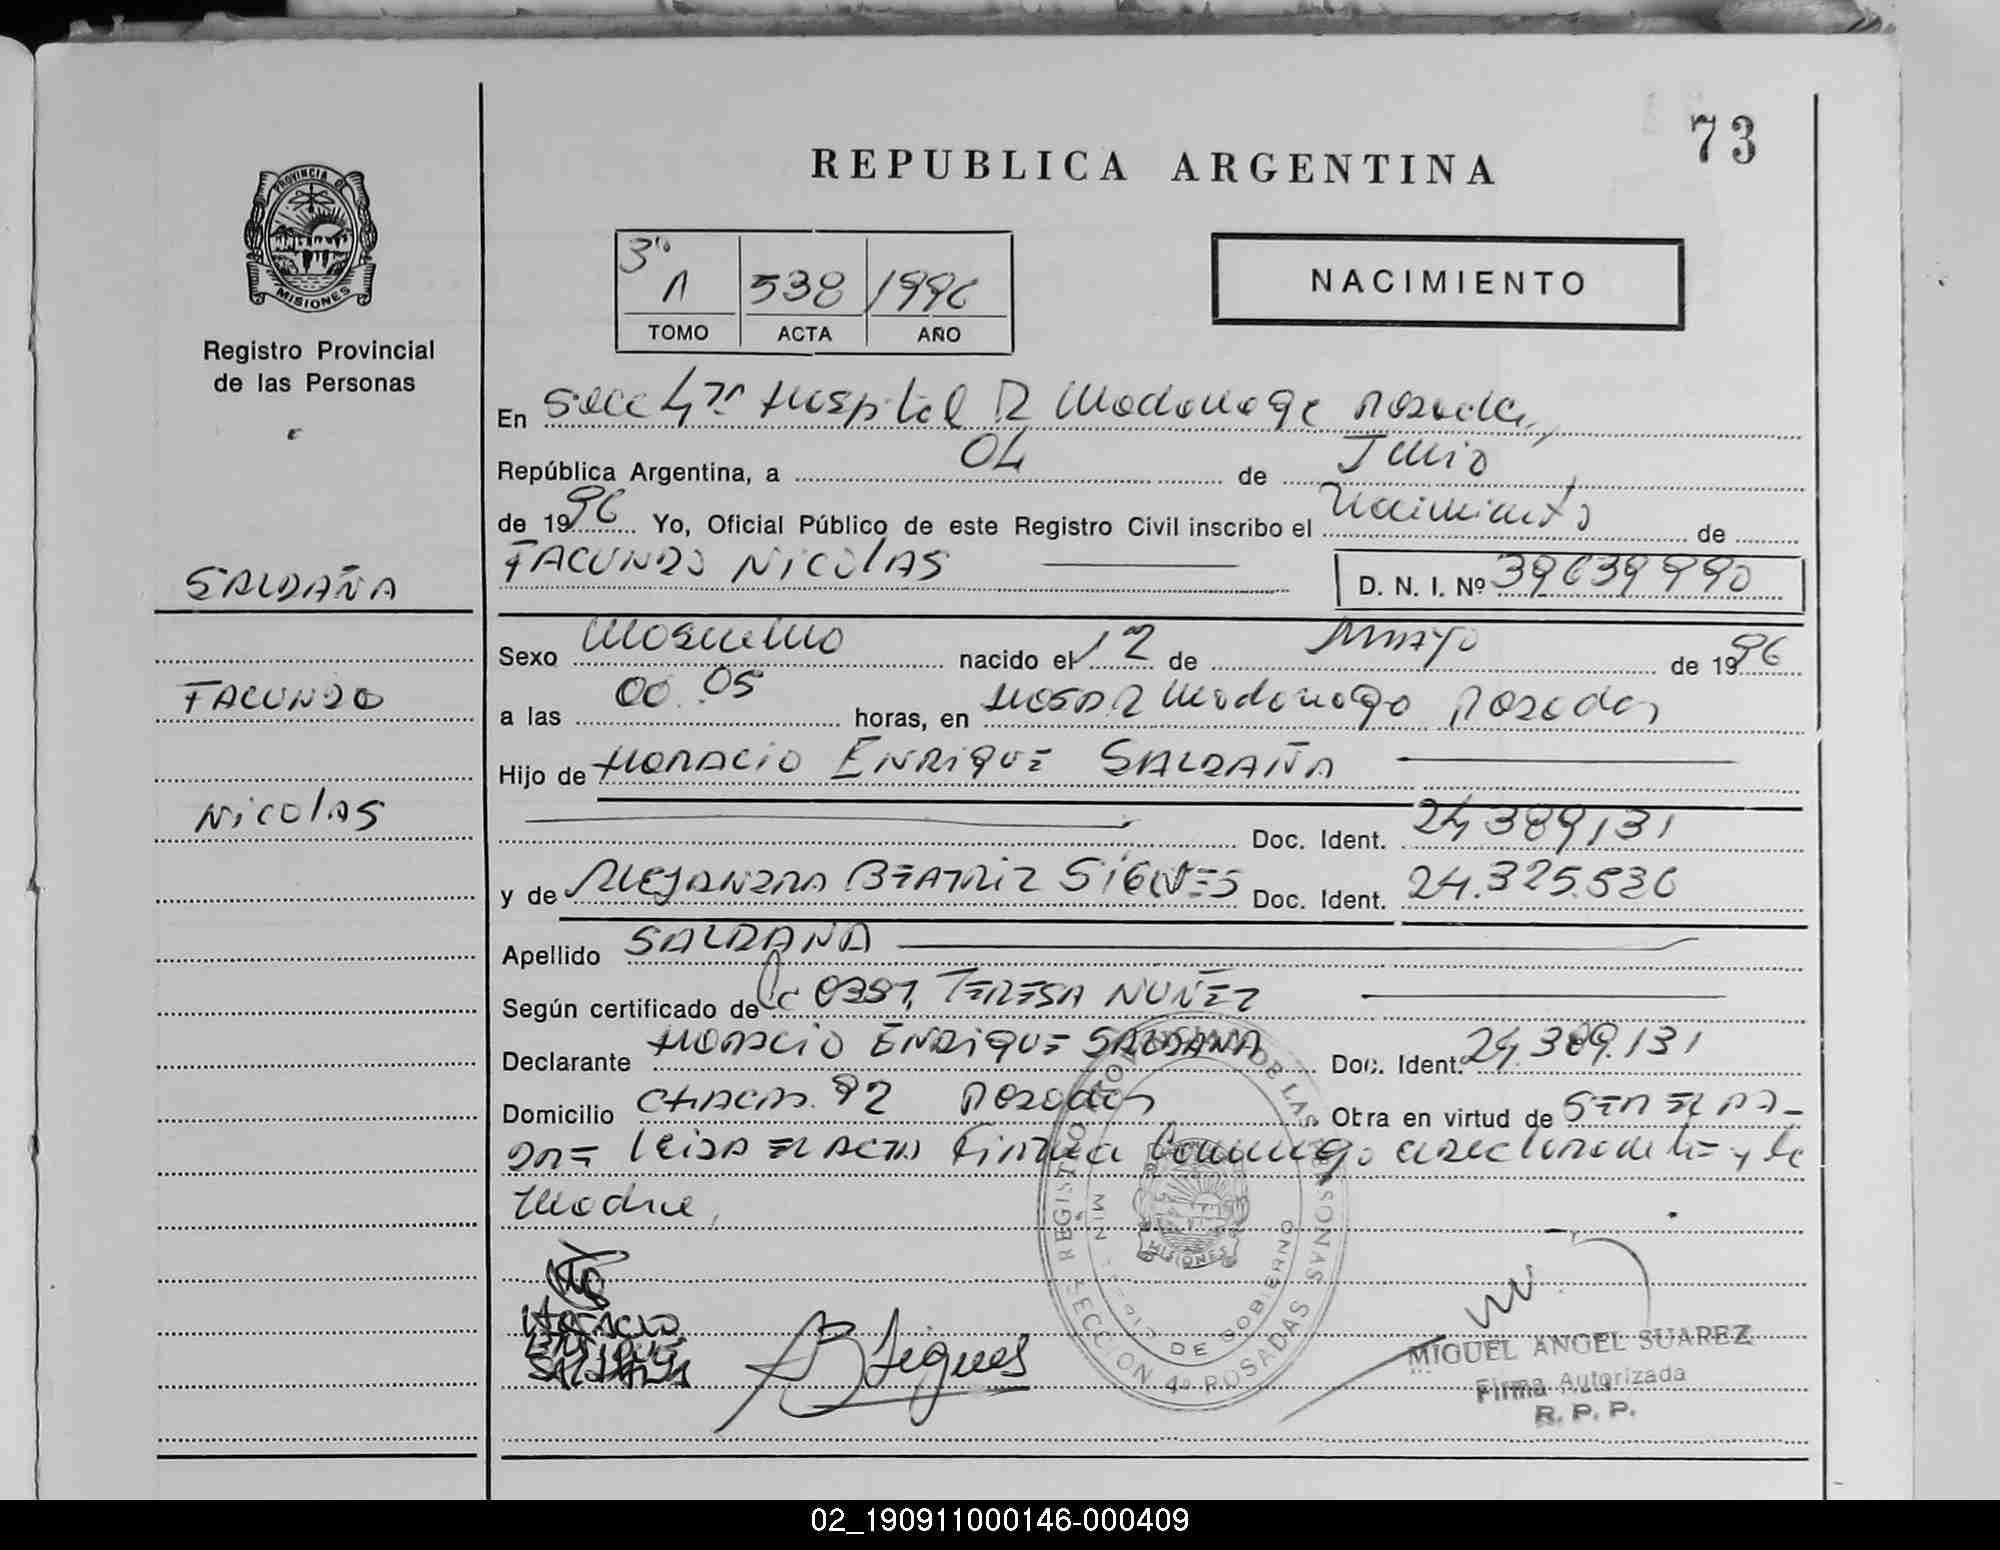 73
REPUBLICA ARGENTINA
PROVINCIA DE
MISIONES
Registro Provincial
de las Personas
3º A 538 1996
TOMO ACTA AÑO
NACIMIENTO
En Secc 4ta Hospital R Madariaga Posadas,
República Argentina, a 04 de Junio
de 1996 Yo, Oficial Público de este Registro Civil inscribo el Nacimiento de
SALDAÑA
FACUNDO NICOLAS D. N. I. Nº 39639990
Sexo Masculino nacido el 12 de MAYO de 1996
FACUNDO
a las 00.05 horas, en Hosp. R Madariaga Posadas
Hijo de HORACIO ENRIQUE SALDAÑA
NICOLAS
Doc. Ident. 24.389.131
y de ALEJANDRA BEATRIZ SIGNES Doc. Ident. 24.325.536
Apellido SALDAÑA
Según certificado de La OBST. TERESA NUÑEZ
Declarante HORACIO ENRIQUE SALDAÑA Doc. Ident. 24.389.131
Domicilio CHACRA. 92 Posadas Obra en virtud de SER EL PA-
DRE LEIDA EL ACTA Firma Conmigo el declarante y la
Madre,
REGISTRO PROVINCIAL DE LAS PERSONAS
SECCION 4º POSADAS
MINISTERIO DE GOBIERNO
MISIONES
HORACIO
ENRIQUE
SALDAÑA
ABSignes
MIGUEL ANGEL SUAREZ
Firma Autorizada
R. P. P.
02_190911000146-000409